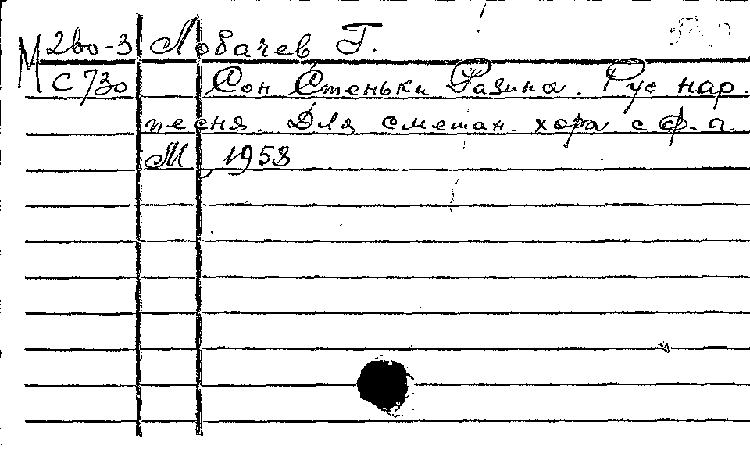 М 2во-3 Лобачев Г.
С 730 Сон Стеньки Разина. Рус нар.
песня. Для смешан. хора с ф.-п.
М., 1953